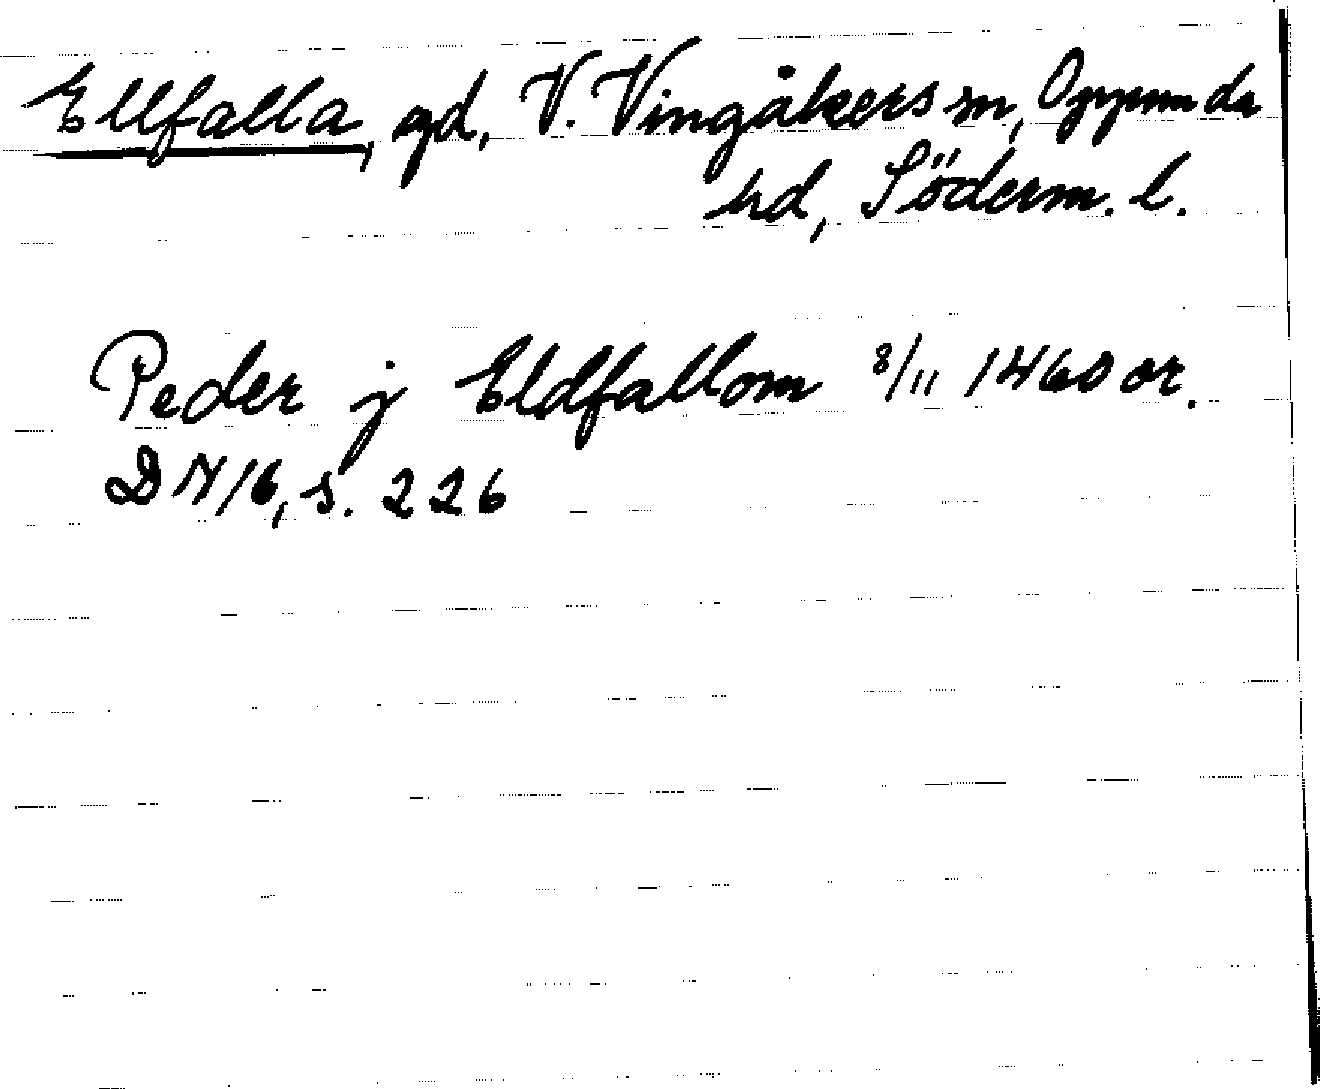 Ellfalla, gd, V. Vingåkers sn, Oppunda
hd, Söderm. l.
Peder j Eldfallom 8/11 1460 or.
DN 16, s. 226